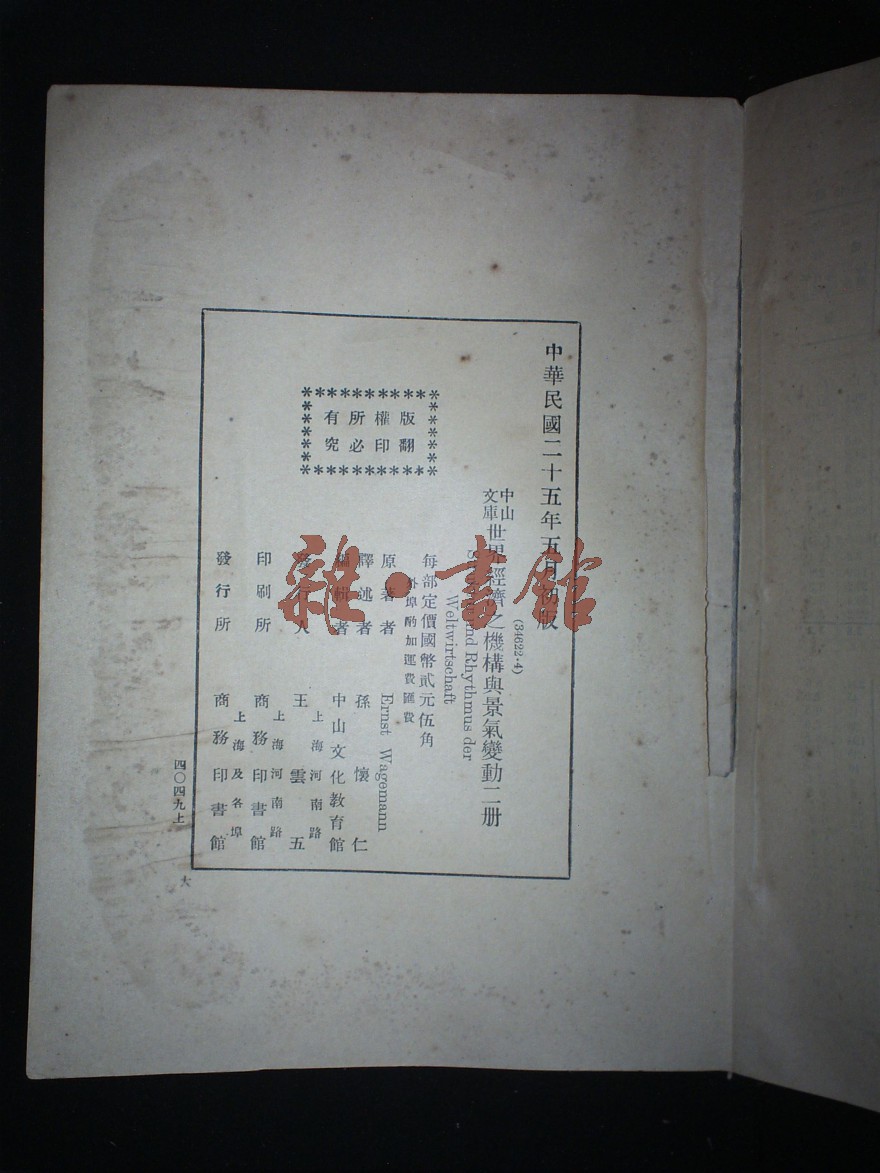 中華民國二十五年五月初版
(34622·4)
中山文庫 世界經濟之機構與景氣變動二册
Struktur und Rhythmus der
Weltwirtschaft
每部定價國幣貳元伍角
外埠酌加運費匯費
原著者 Ernst Wagemann
譯述者 孫懷仁
編輯者 中山文化教育館
上海河南路
發行人 王雲五
上海河南路
印刷所 商務印書館
上海及各埠
發行所 商務印書館
版權所有
翻印必究
四〇四九上
大
雜·書館